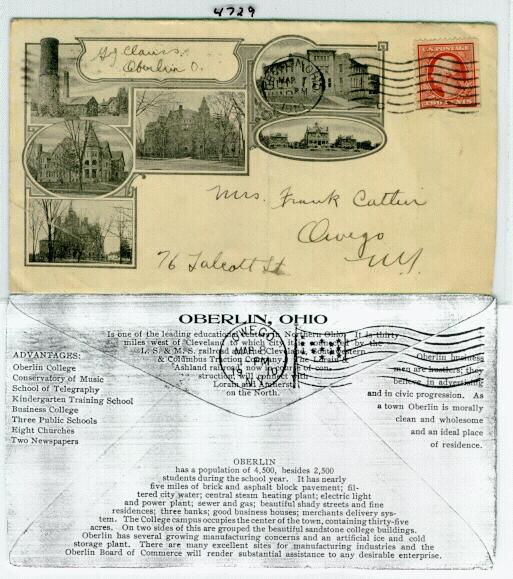 4729
Oberlin O.
U.S. POSTAGE
TWO CENTS
MAR 7
PM
Mrs. Frank Catlin
Owego
N.Y.
76 Talcott St
OBERLIN, OHIO
Is one of the leading educational centers in Northern Ohio. It is thirty
miles west of Cleveland to which city it is connected by the
L. S. & M. S. railroad and the Cleveland, Southwestern
& Columbus Traction Company. The Lorain
Ashland railroad, now in course of con-
struction, will connect with
Lorain and Amherst
on the North.
OWEGO
MAR 8
ADVANTAGES:
Oberlin College
Conservatory of Music
School of Telegraphy
Kindergarten Training School
Business College
Three Public Schools
Eight Churches
Two Newspapers
Oberlin business
men are hustlers; they
believe in advertising
and in civic progression. As
a town Oberlin is morally
clean and wholesome
and an ideal place
of residence.
OBERLIN
has a population of 4,500, besides 2,500
students during the school year. It has nearly
five miles of brick and asphalt block pavement; fil-
tered city water; central steam heating plant; electric light
and power plant; sewer and gas; beautiful shady streets and fine
residences; three banks; good business houses; merchants delivery sys-
tem. The College campus occupies the center of the town, containing thirty-five
acres. On two sides of this are grouped the beautiful sandstone college buildings.
Oberlin has several growing manufacturing concerns and an artificial ice and cold
storage plant. There are many excellent sites for manufacturing industries and the
Oberlin Board of Commerce will render substantial assistance to any desirable enterprise.